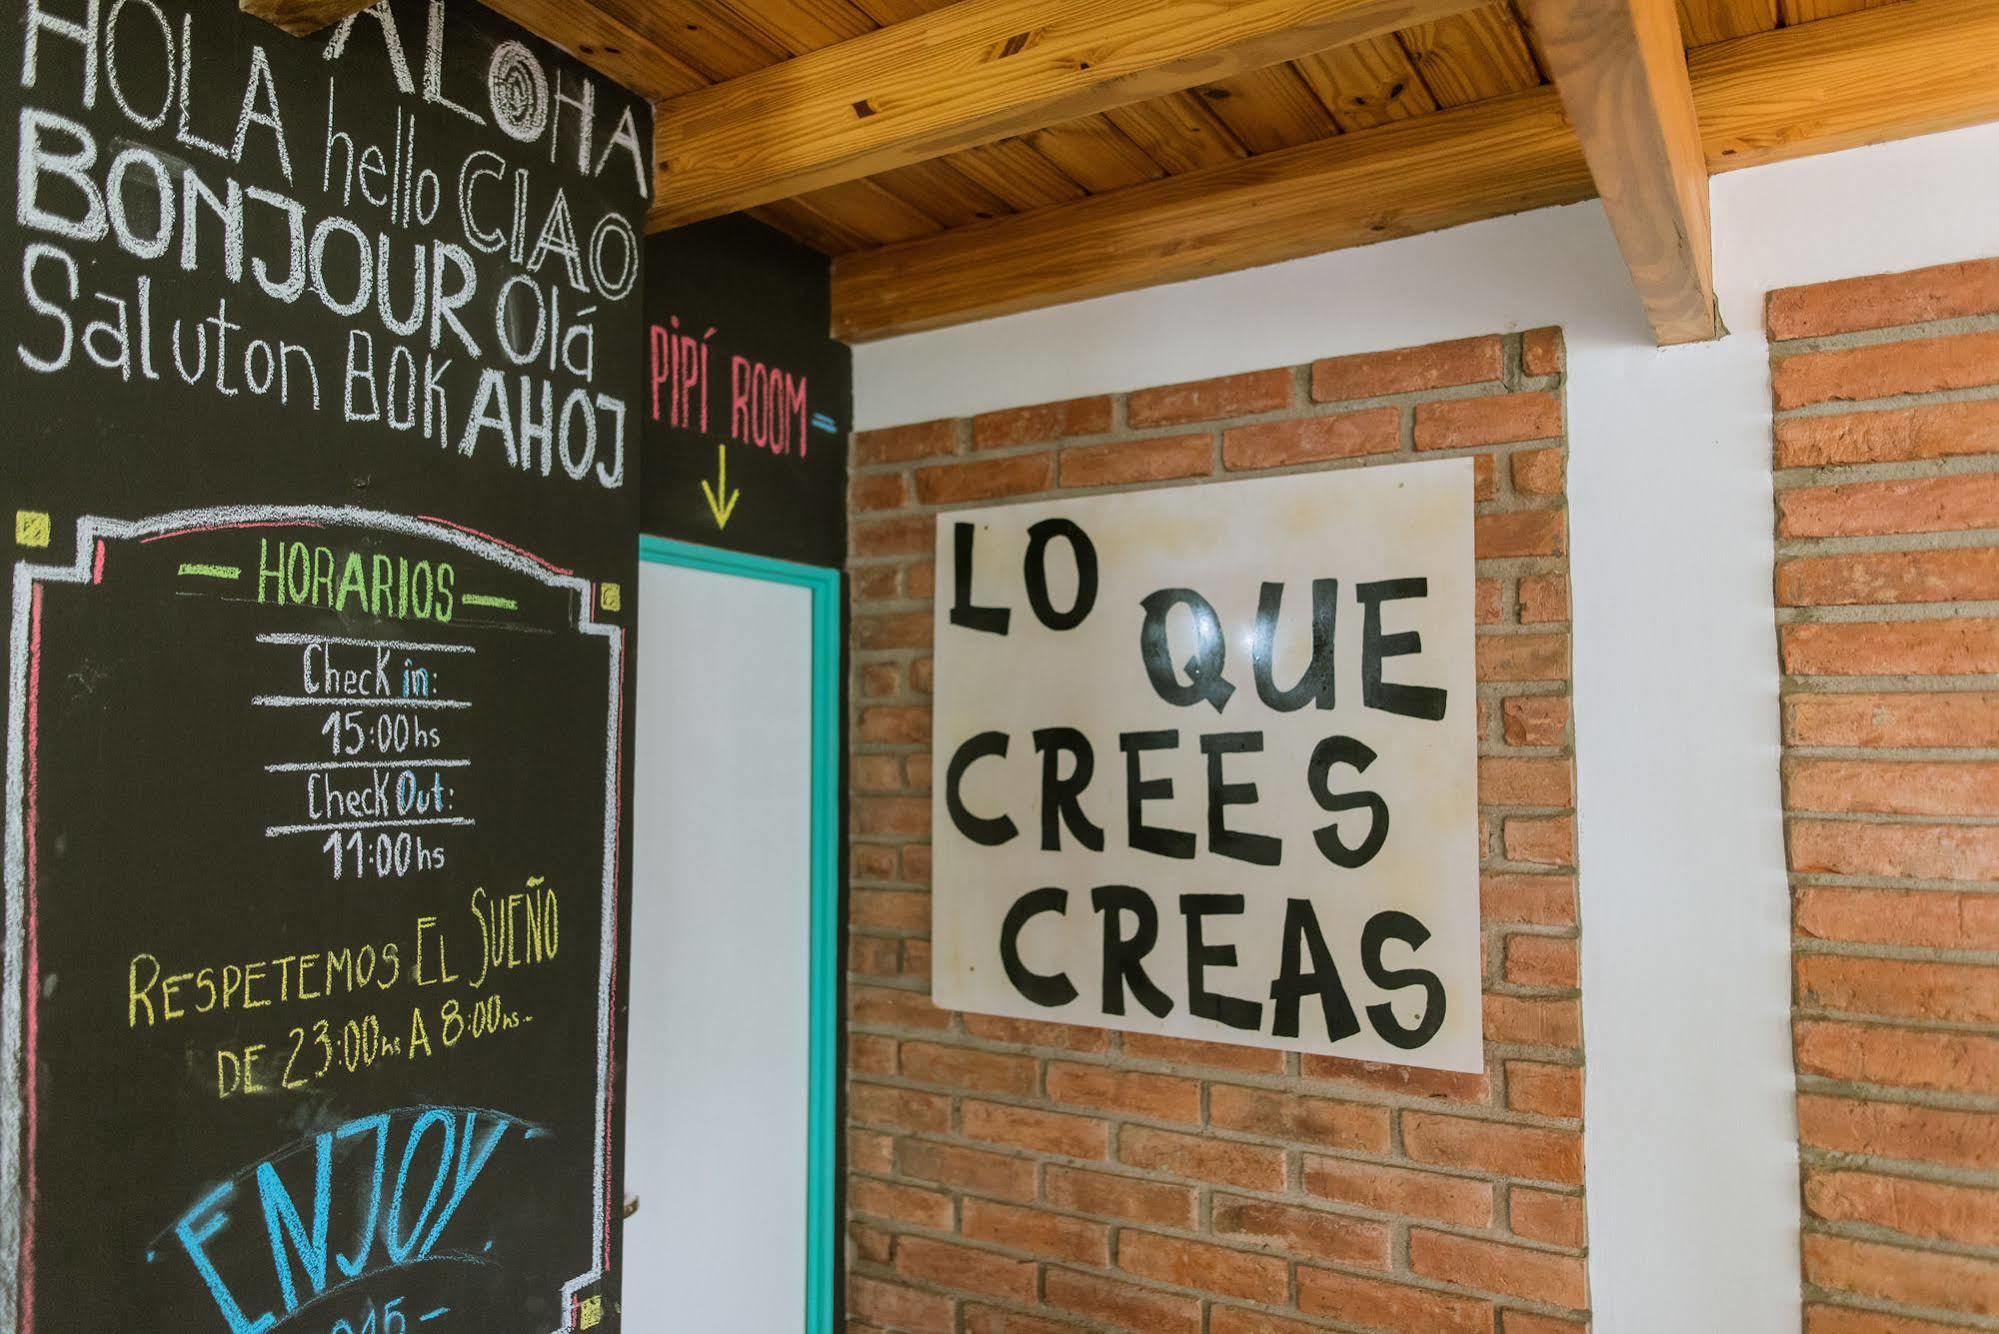 ALOHA
HOLA hello CIAO
BONJOUR Olá
Saluton BOK AHOJ
PIPÍ ROOM
HORARIOS
Check in:
15:00hs
Check Out:
11:00hs
RESPETEMOS EL SUEÑO
DE 23:00hs A 8:00hs-
ENJOY
LO
QUE
CREES
CREAS